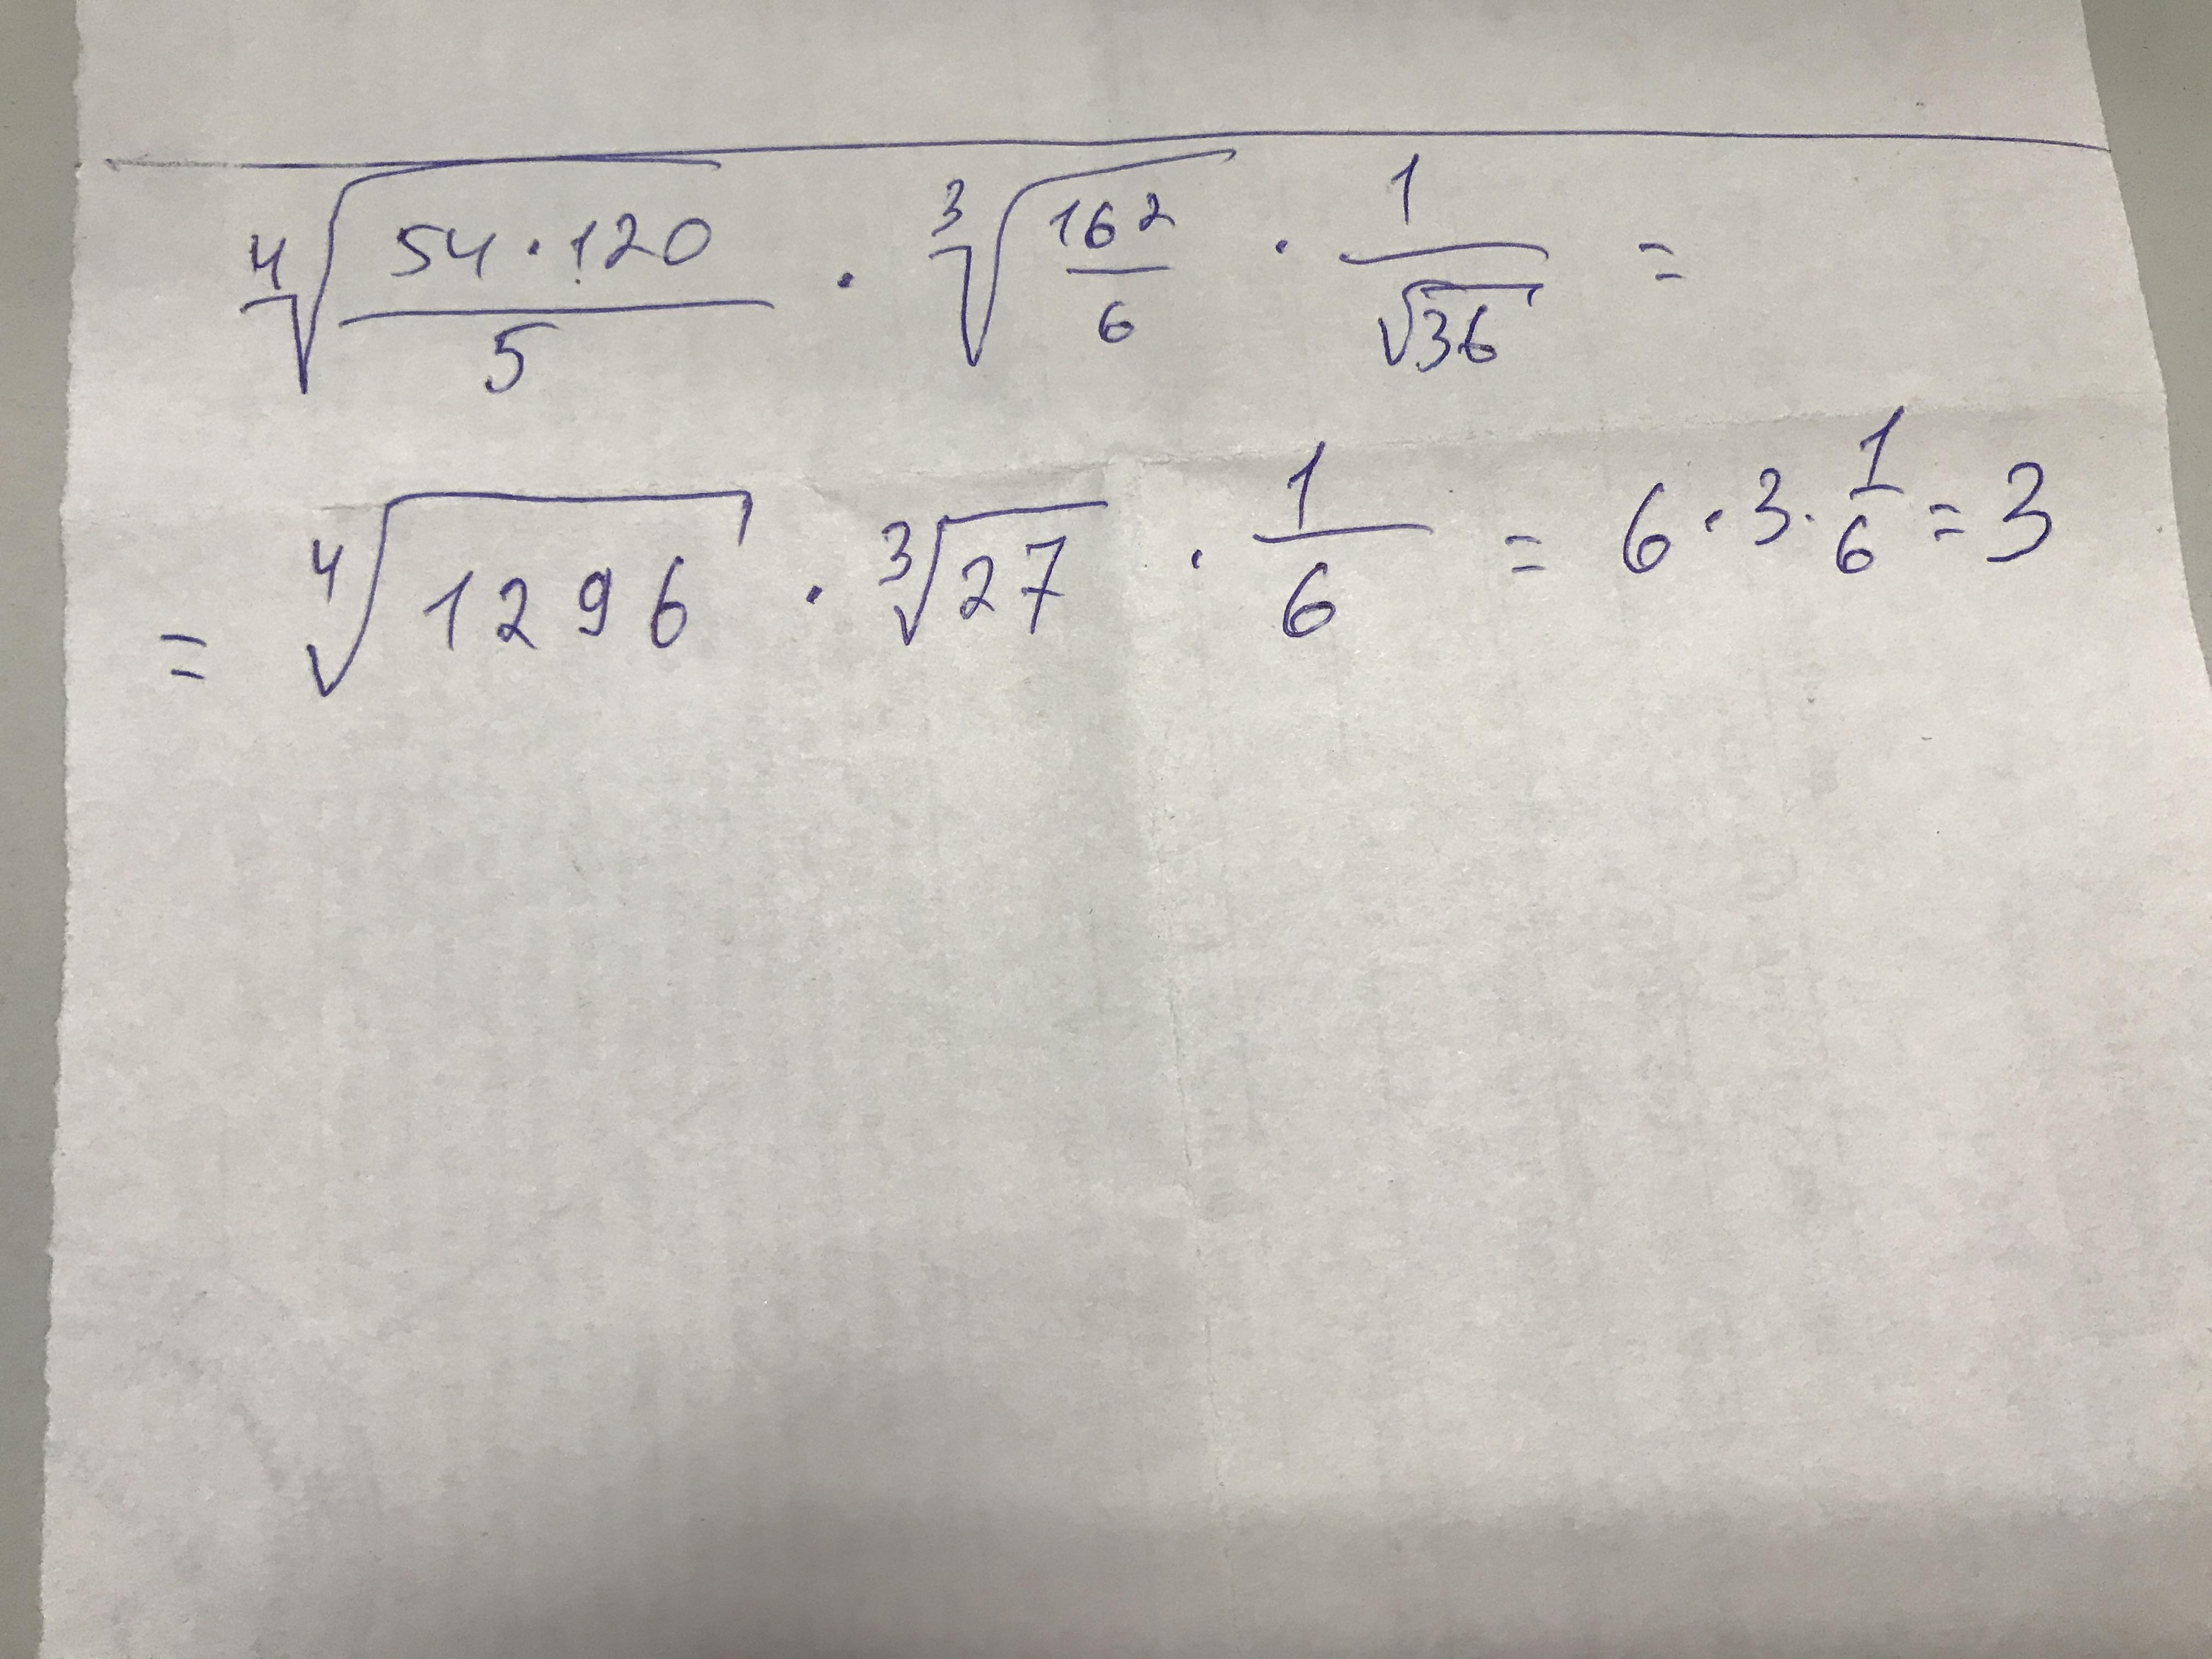 ⁴√(54·120/5) · ³√(162/6) · 1/√36 =
= ⁴√1296 · ³√27 · 1/6 = 6·3·1/6 = 3